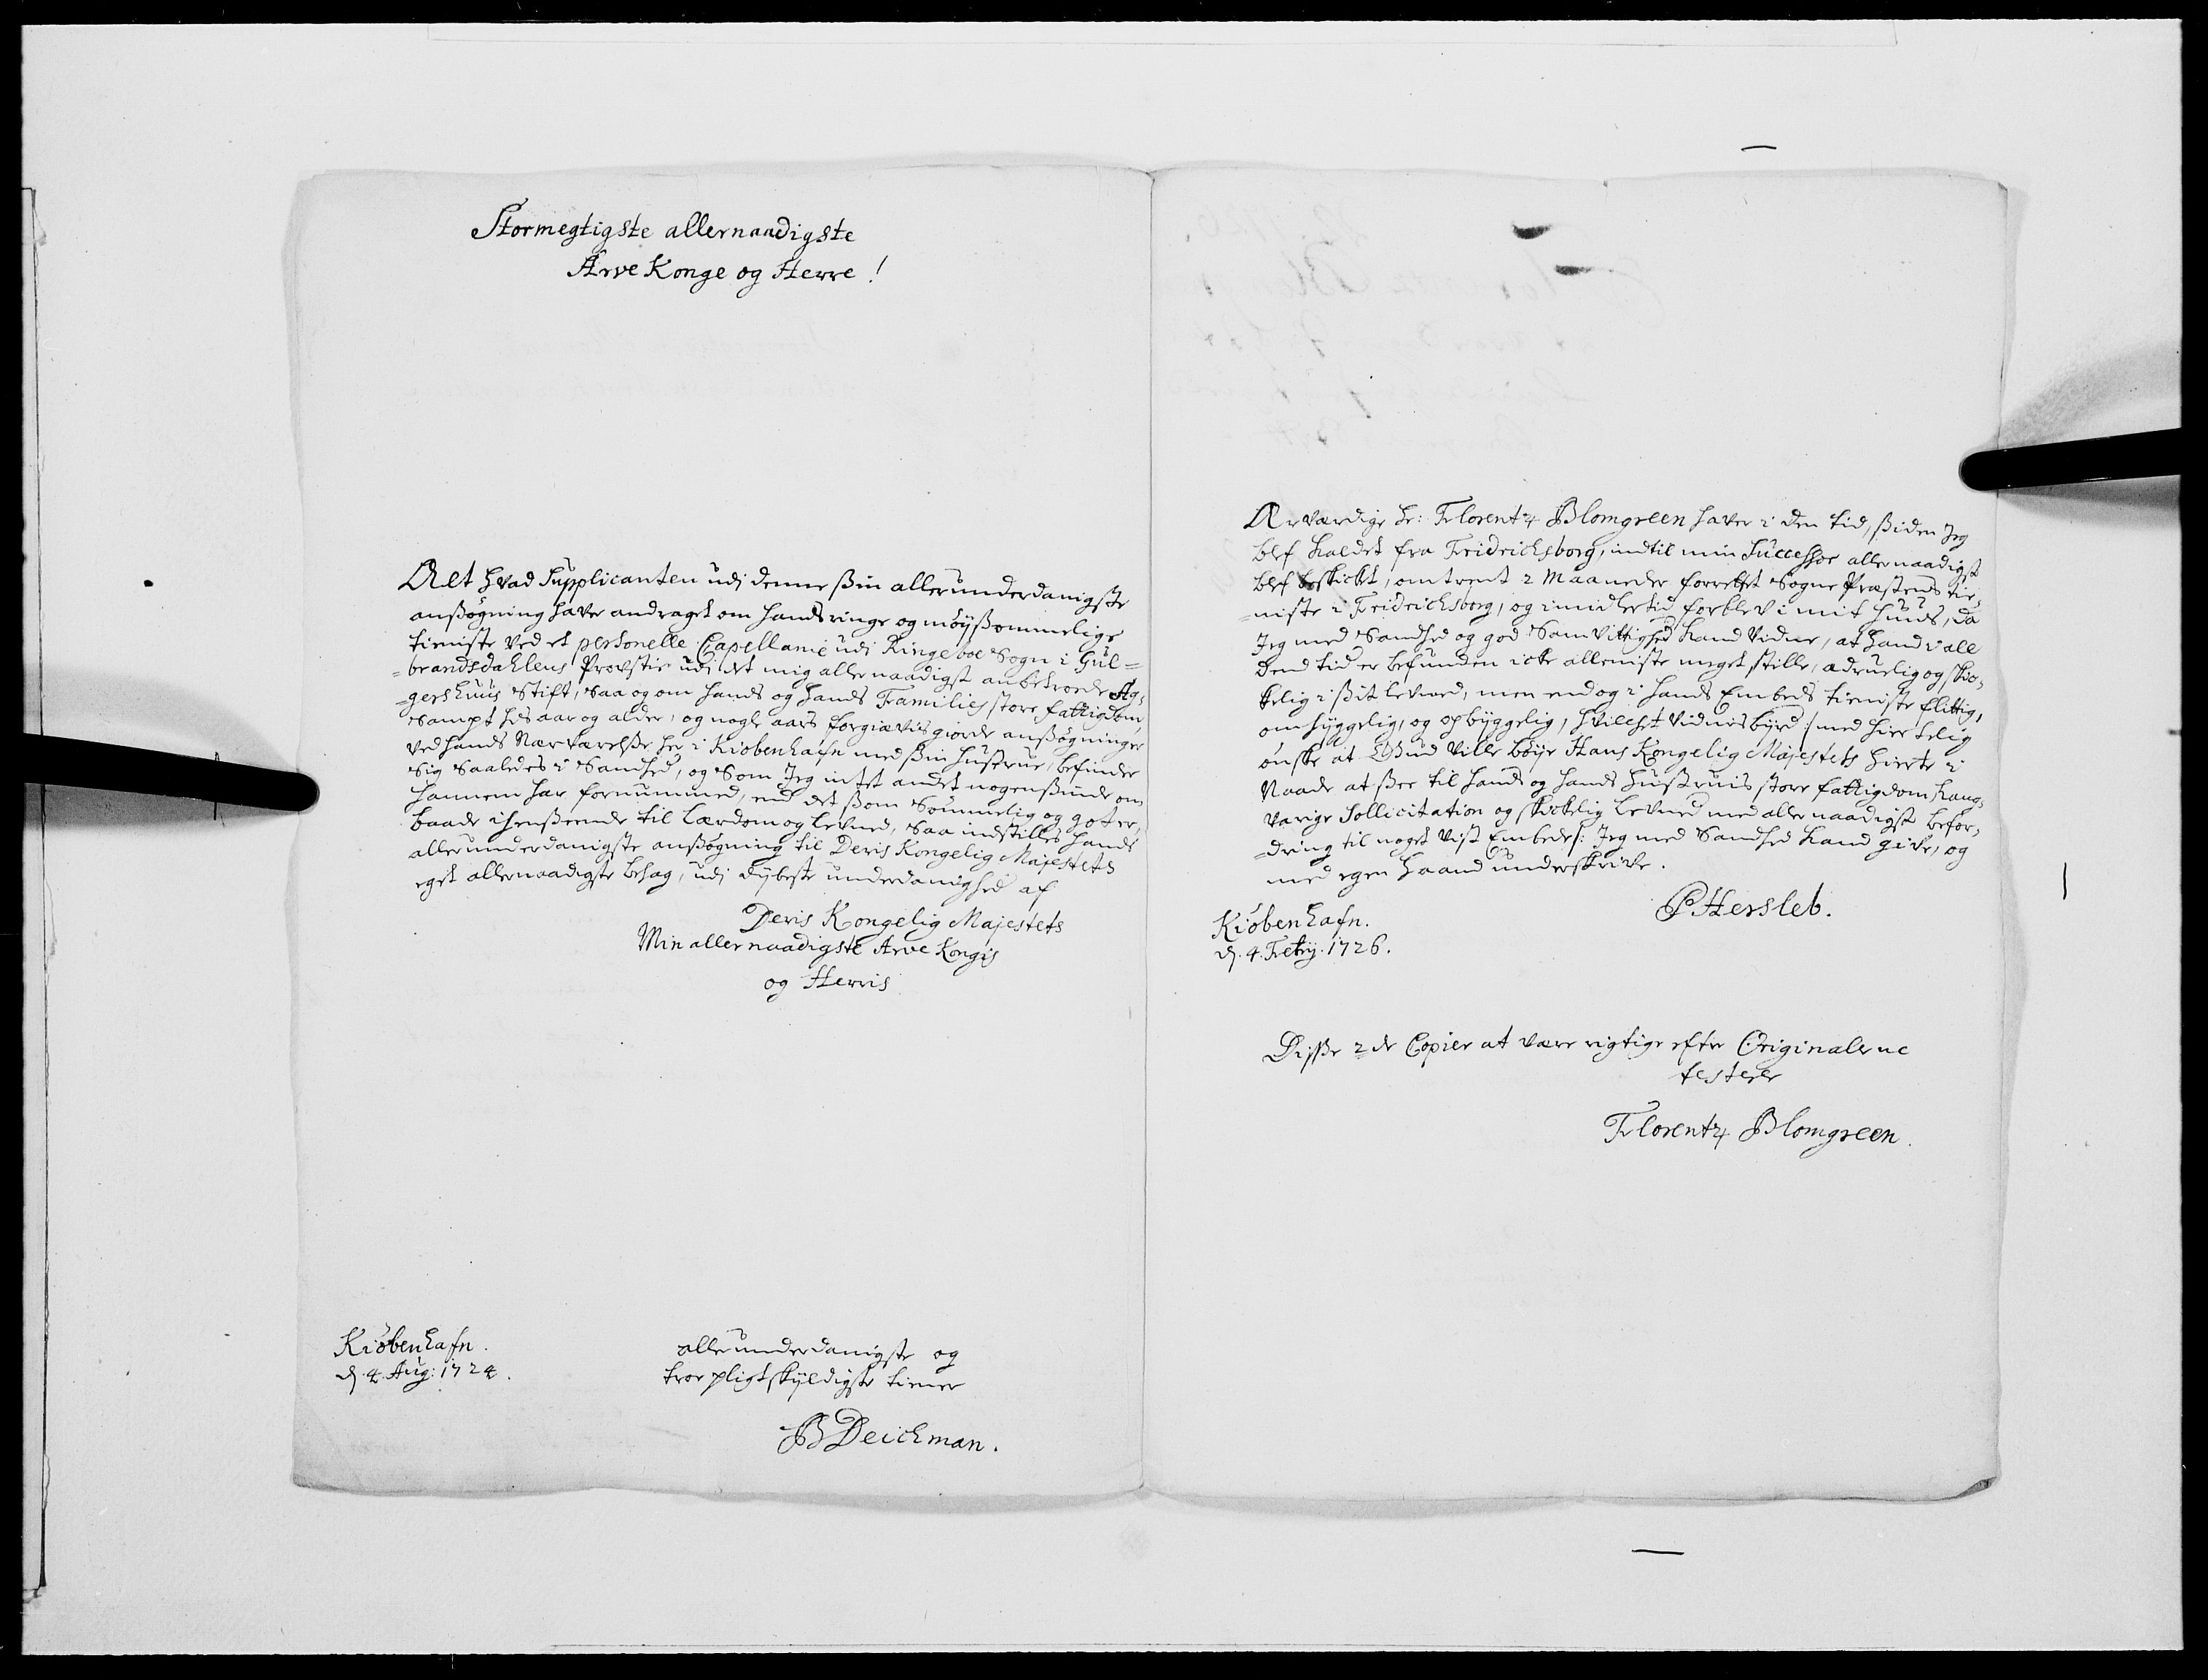 Stormegtigste allernaadigste
Arve Konge og Herre!
Alt hvad Supplicanten udj denne sin allerunderdanigste
ansøgning haver andraget om hands ringe og møysommelige
tieniste ved et personelle Capellanie udi Ringeboe Sogn i Gul=
=brandsdahlens Provstie udi det mig allernaadigst anbetroede Ag=
=gershuus Stift, Saa og om hands og hands Families store fattigdom,
Sampt hds aar og alder, og nogle aars forgiæves giorde ansøgninger
ved hands Nærværelse her i Kiøbenhafn med sin hustrue, befinder
sig saaledes i Sandhed, og som Jeg intet andet nogensinde om
hannem har fornummed, end det som Sømmelig og got er,
baade i henseende til Lærdom og levned, Saa indstilles hands
allerunderdanigste ansøgning til Deris Kongelig Majestets
eget allernaadigste behag, udj dybeste underdanighed af
Deris Kongelig Majestets
Min allernaadigste Arve Kongis
og Herris
Kiøbenhafn.
d. 4. Aug: 1724.
allerunderdanigste og
troe pligtskyldigste tiener
B Deichman.
Ærværdige hr: Florentz Blomgreen haver i den tid, siden Jeg
blef kaldet fra Fridrichsborg, indtil min Successor allernaadigst
blef beskicket, omtrent 2 Maaneder forrettet Sogne Præstens tie=
=niste i Fridrichsborg, og imidlertid forblev i mit huus, da
Jeg med Sandhed og god Samvittighed kand vidne, at hand i all
dend tid er befunden icke alleniste meget stille, ædruelig og skic=
kelig i sit levned, men end og i hands Embeds tieniste flittig,
omhyggelig, og opbyggelig, hvilcket vidnisbyrd /: med hiertelig
ønske at Gud ville bøye Hans Kongelig Majestets hierte i
Naade at see til hands og hands hustruis store fattigdom, lang=
varige Sollicitation og skickelig levned med allernaadigst befor=
=dring til noget vist Embede :/ Jeg med Sandhed kand give, og
med egen haand underskrive.
P Hersleb.
Kiøbenhafn.
d. 4. Febry. 1726.
Disse 2de Copier at være rigtige efter Originalerne
testerer
Florentz Blomgreen.